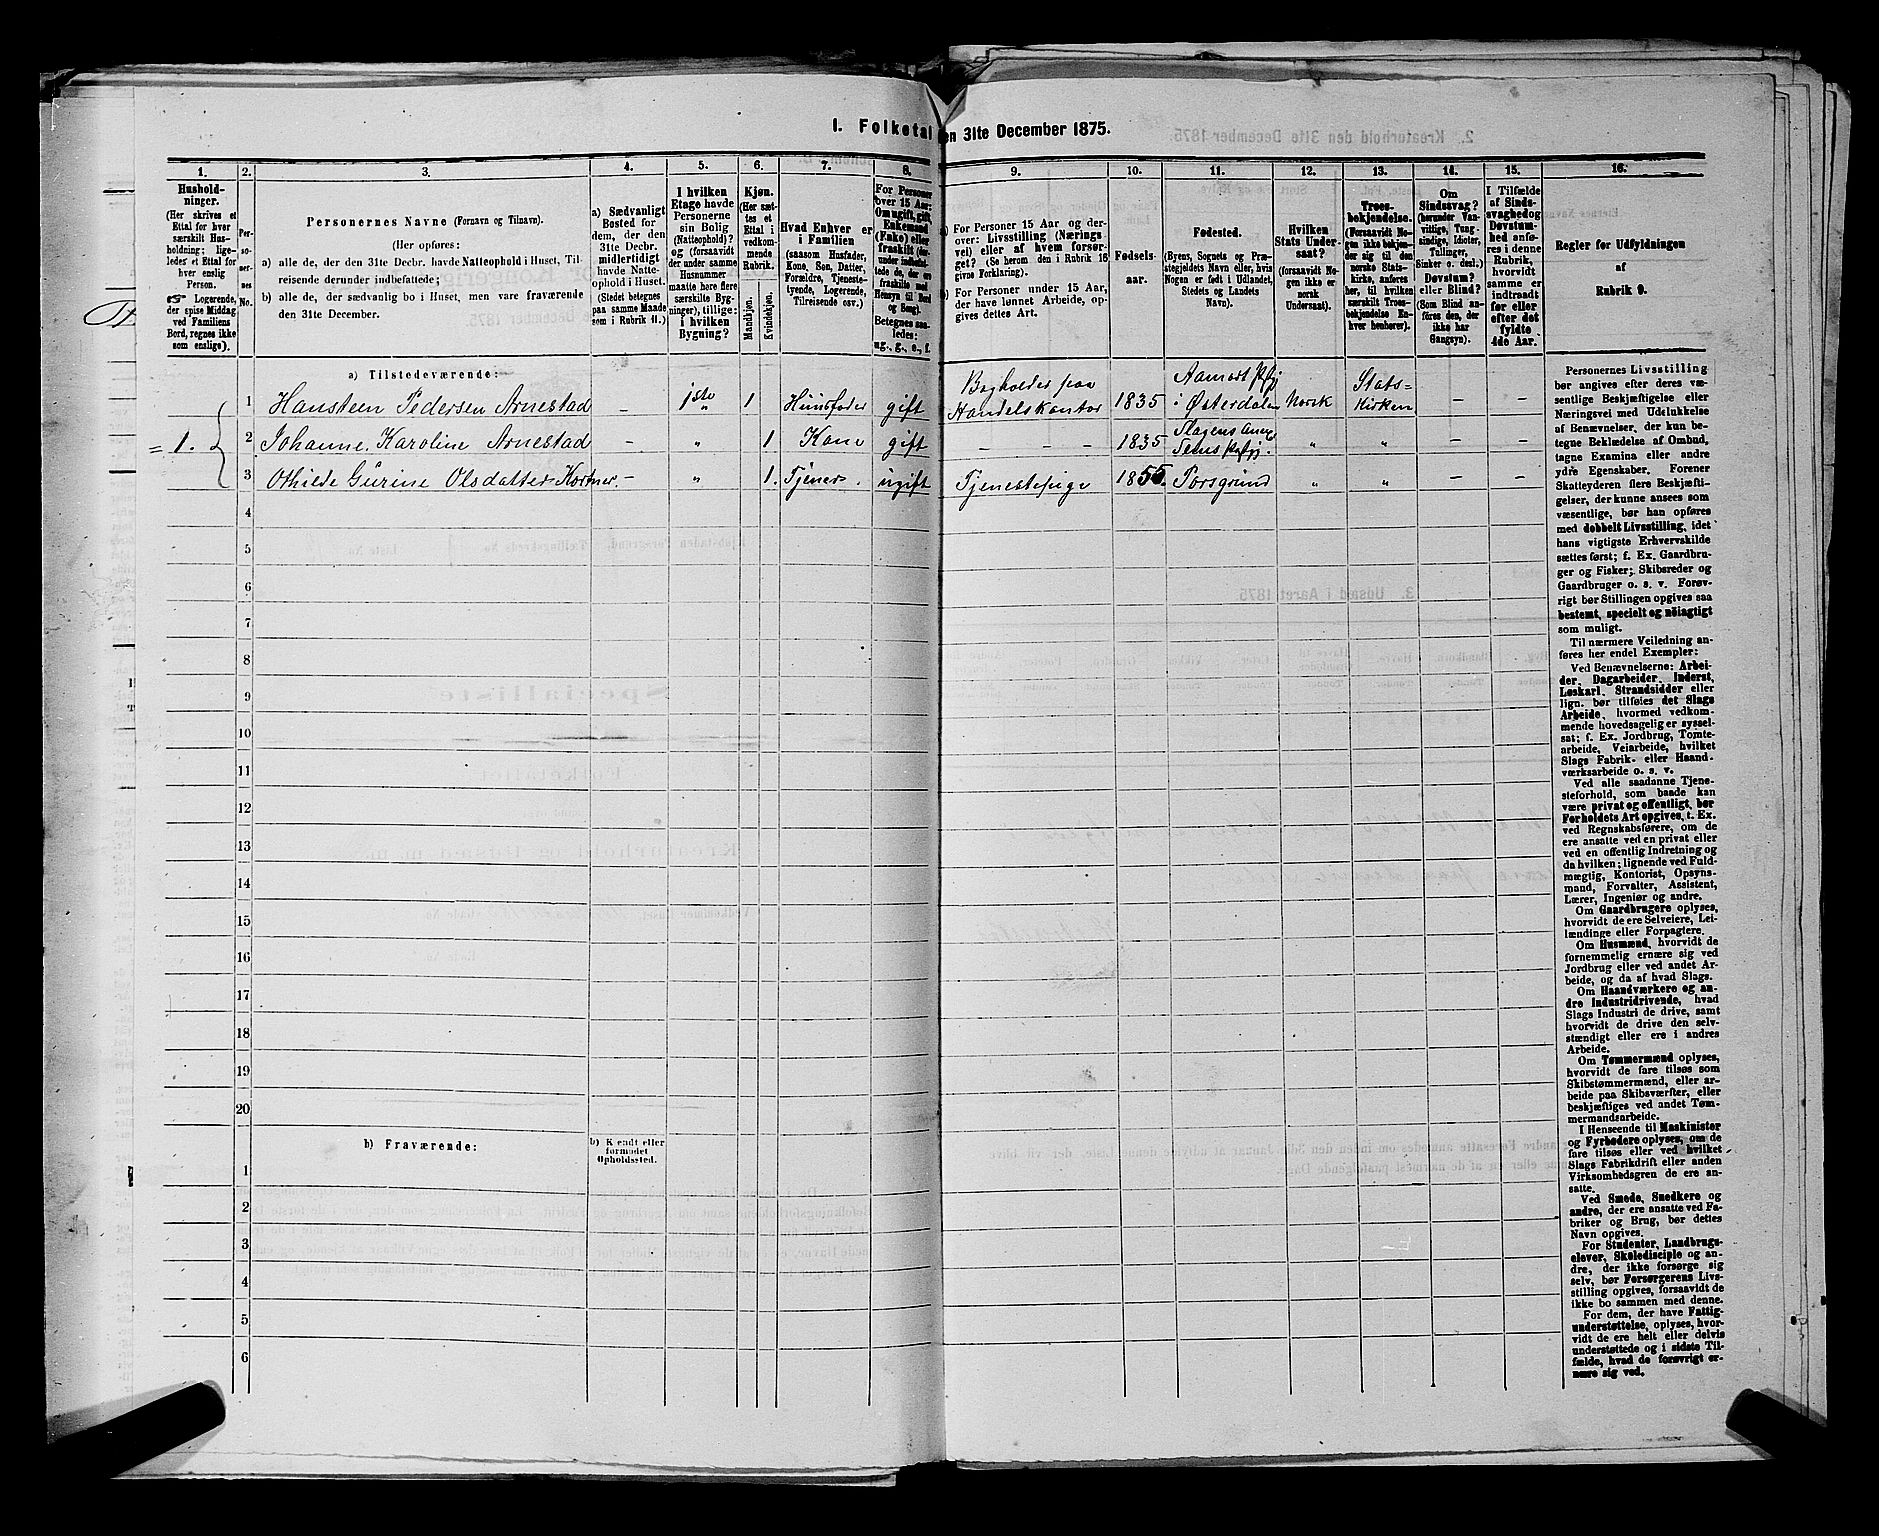 1. Folketal
en 31te December 1875.
1. 2. 3. 4. 5. 6. 7. 8. 9. 10. 11. 12. 13. 14. 15. 16.
Hushold-
ninger.
(Her skrives et
Ettal for hver
særskilt Hus-
holdning; lige-
ledes et Ettal for
hver enslig
Person.
☞ Logerende,
der spise Middag
ved Familiens
Bord, regnes ikke
som enslige).
Per-
so-
ner-
nes
No.
Personernes Navne (Fornavn og Tilnavn).
(Her opføres:
a) alle de, der den 31te Decbr. havde Natteophold i Huset, Til-
reisende derunder indbefattede;
b) alle de, der sædvanlig bo i Huset, men vare fraværende
den 31te December.
a) Sædvanligt
Bosted for
dem, der den
31te Decbr.
midlertidigt
havde Natte-
ophold i Huset.
(Stedet betegnes
paa samme Maade
som i Rubrik 11.)
I hvilken
Etage havde
Personerne
sin Bolig
(Natteophold)?
og (forsaavidt
der under samme
Husnummer
maatte høre flere
særskilte Byg-
ninger), tillige:
i hvilken
Bygning?
Kjøn.
(Her sæt-
tes et
Ettal i
vedkom-
mende
Rubrik.
Mandkjøn.
Kvindekjøn.
Hvad Enhver er
i Familien
(saasom Husfader,
Kone, Søn, Datter,
Forældre, Tjeneste-
tyende, Logerende,
Tilreisende osv.)
For Personer
over 15 Aar:
Om ugift, gift,
Enkemand
(Enke) eller
fraskilt (der-
under indbefat-
tede de, der ere
fraskilte med
Hensyn til Bord
og Seng).
Betegnes saa-
ledes:
ug., g., e., f.
For Personer 15 Aar og der-
over: Livsstilling (Nærings-
vei) eller af hvem forsør-
get? (Se herom den i Rubrik 16
givne Forklaring).
For Personer under 15 Aar,
der have lønnet Arbeide, op-
gives dettes Art.
Fødsels-
aar.
Fødested.
(Byens, Sognets og Præ-
stegjeldets Navn eller, hvis
Nogen er født i Udlandet,
Stedets og Landets
Navn).
Hvilken
Stats Under-
saat?
(forsaavidt No-
gen ikke er
norsk
Undersaat).
Troes-
bekjendelse.
(Forsaavidt No-
gen ikke bekjen-
der sig til den
norske Stats-
kirke, anføres
her, til hvilken
særskilt Troes-
bekjendelse En-
hver henhører).
Om
Sindssvag?
(herunder Van-
vittige, Tung-
sindige, Idioter,
Tullinger,
Sinker o. desl.)
Døvstum?
eller Blind?
(Som Blind an-
føres den, der
ikke har
Gangsyn).
I Tilfælde
af Sinds-
svaghed og
Døvstum-
hed anfø-
res i denne
Rubrik,
hvorvidt
samme er
indtraadt
før eller
efter det
fyldte
4de Aar.
Regler for Udfyldningen
af
Rubrik 9.
a) Tilstedeværende:
1. 1 Hansteen Pedersen Arnestad – 1ste 1 Huusfader gift Bogholder paa Handelskontor 1835 Aamodt Pgj i Østerdalen Norsk Stats= Kirken – –
2 Johanne Karoline Arnestad – " 1 Kone gift – – – 1835 Slagens Annex Sems Pgj. " " – –
3 Othilde Gurine Olsdatter – " 1. Tjener ugift Tjenestepige 1855. Porsgrund " " – –
4
5
6
7
8
9
10
11
12
13
14
15
16
17
18
19
20
b) Fraværende:
b) Kjendt eller
formodet
Opholdssted.
1
2
3
4
5
6
Personernes Livsstilling
bør angives efter deres væ-
sentlige Beskjæftigelse eller
Næringsvei med Udelukkelse
af Benævnelser, der kun be-
tegne Beklædelse af Ombud,
tagne Examina eller andre
ydre Egenskaber. Forener
Skatteyderen flere Beskjæfti-
gelser, der kunne ansees som
væsentlige, bør han opføres
med dobbelt Livsstilling, idet
hans vigtigste Erhvervskilde
sættes først; f. Ex. Gaardbru-
ger og Fisker; Skibsreder og
Gaardbruger o. s. v. Forøv-
rigt bør Stillingen opgives saa
bestemt, specielt og nöiagtigt
som muligt.
Til nærmere Veiledning an-
føres her endel Exempler:
Ved Benævnelserne: Arbei-
der, Dagarbeider, Inderst,
Løskarl, Strandsidder eller
lign. bør tilføies det Slags
Arbeide, hvormed vedkom-
mende hovedsagelig er syssel-
sat; f. Ex. Jordbrug, Tomte-
arbeide, Veiarbeide, hvilket
Slags Fabrik- eller Haand-
værksarbeide o. s. v.
Ved alle saadanne Tjene-
steforhold, som baade kan
være privat og offentligt, bør
Forholdets Art opgives, f. Ex.
ved Regnskabsførere, om de
ere ansatte ved en privat eller
ved en offentlig Indretning og
da hvilken; lignende ved Fuld-
mægtig, Kontorist, Opsyns-
mand, Forvalter, Assistent,
Lærer, Ingeniør og andre.
Om Gaardbrugere oplyses,
hvorvidt de ere Selveiere, Lei-
lændinge eller Forpagtere.
Om Husmænd, hvorvidt de
fornemmelig ernære sig ved
Jordbrug eller ved andet Ar-
beide, og da af hvad Slags.
Om Haandværkere og an-
dre Industridrivende, hvad
Slags Industri de drive, samt
hvorvidt de drive den selv-
stændigt eller ere i andres
Arbeide.
Om Tømmermænd oplyses,
hvorvidt de fare tilsøs som
Skibstømmermænd, eller ar-
beide paa Skibsværfter, eller
beskjæftiges ved andet Tøm-
mermandsarbeide.
I Henseende til Maskinister
og Fyrbødere oplyses, om de
fare tilsøs eller ved hvilket
Slags Fabrikdrift eller anden
Virksomhedsgren de ere an-
satte.
Ved Smede, Snedkere og
andre, der ere ansatte ved Fa-
briker og Brug, bør dettes
Navn opgives.
For Studenter, Landbrugs-
elever, Skoledisciple og an-
dre, der ikke forsørge sig
selv, bør Forsørgerens Livs-
stilling opgives, forsaavidt de
ikke bo sammen med denne.
For dem, der have Fattig-
understøttelse, oplyses, hvor-
vidt de ere helt eller delvis
understøttede og i sidste Til-
fælde, hvad de forøvrigt er-
nære sig ved.